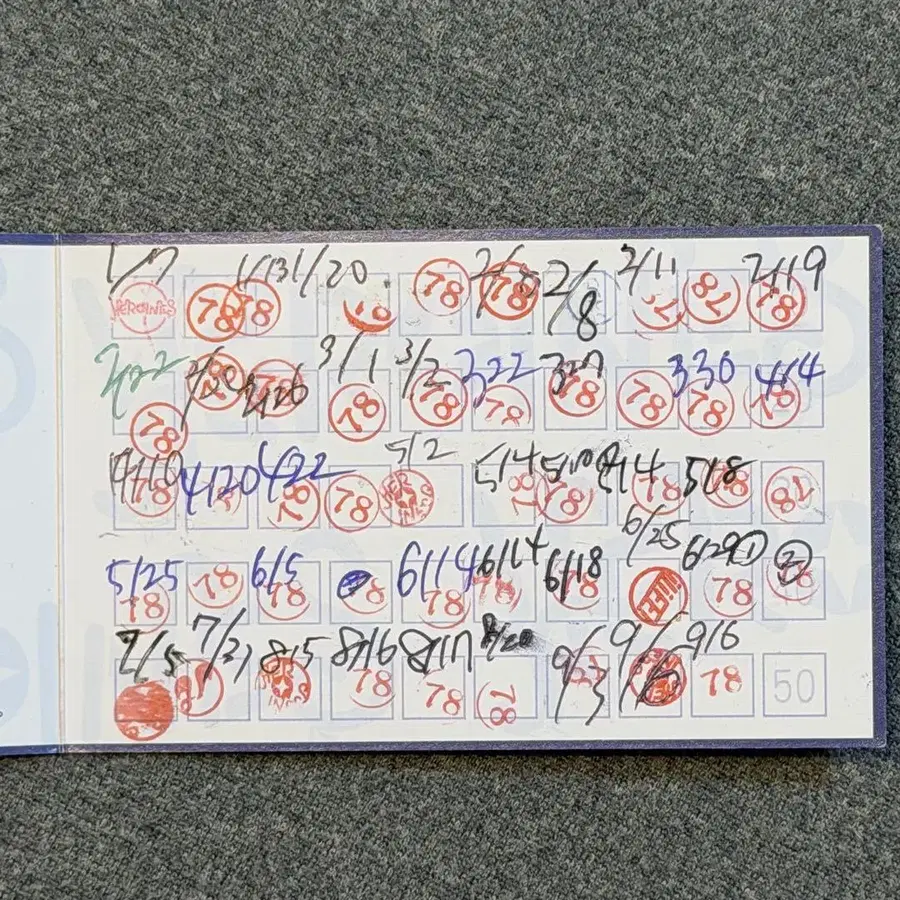 1/7 1/13 1/20 2/8 2/11 2/19
HEROINES 78 78 78 78 78 78
2/22 2/26 3/1 3/2 322 327 330 4/4
78 78 78 78 78 78 78 78 78
4/10 4/20 422 5/2 5/4 5/10 5/14 5/18
78 78 78 78 78 78 78 78
5/25 6/5 6/14 6/14 6/18 6/25 6/29① ②
78 78 78 78 78 78 78 78
7/5 7/21 8/5 8/16 8/17 8/20 9/3 9/6 9/6
78 78 78 78 50